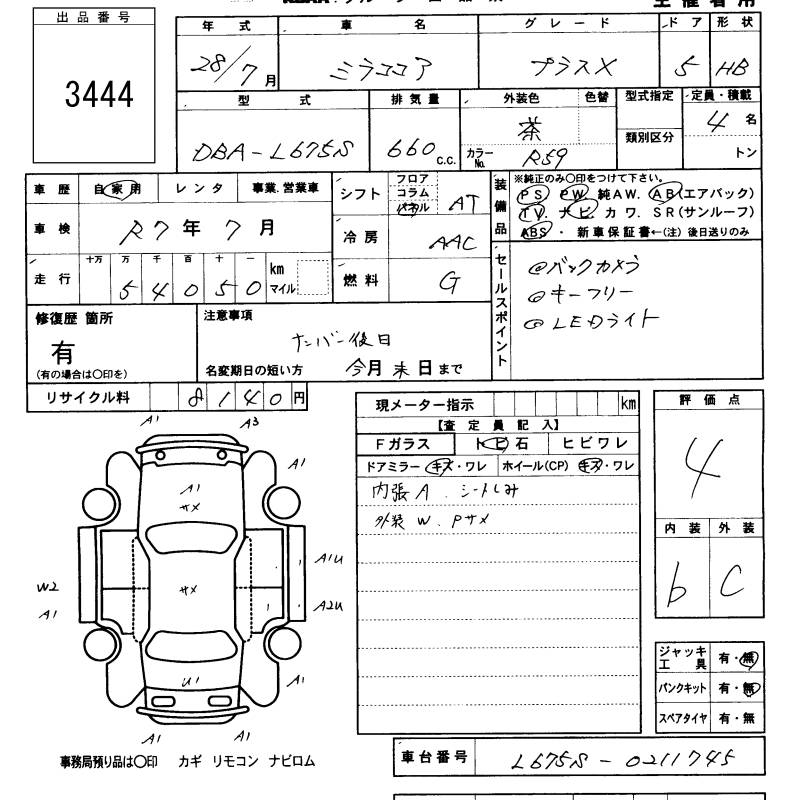 出品番号
3444
年式 車名 グレード ドア 形状
28/7月 ミラココア プラスX 5 HB
型式 排気量 外装色 色替 型式指定 定員・積載
DBA-L675S 660 c.c. 茶 カラーNo. R59 類別区分 4名 トン
車歴 自家用 レンタ 事業.営業車
車検 R7年7月
走行 十万 万 千 百 十 一
54050 km マイル
シフト フロア コラム パネル AT
冷房 AAC
燃料 G
装備品 ※純正のみ〇印をつけて下さい。
PS PW. 純AW. AB(エアバック)
TV. ナビ. カワ. SR(サンルーフ)
ABS ・ 新車保証書←(注) 後日送りのみ
セールスポイント
@バックカメラ
@キーフリー
@LEDライト
修復歴 箇所
有
(有の場合は〇印を)
注意事項
ナンバー後日
名変期日の短い方 今月末日まで
リサイクル料 8140円
現メーター指示 km
【査定員記入】
Fガラス トビ石 ヒビワレ
ドアミラー キズ・ワレ ホイール(CP) キズ・ワレ
内張A. シートしみ
外装W. Pサメ
評価点
4
内装 外装
b C
A1 A3
A1
A1
サメ
A1U
サメ
W2
A2U
A1
U1 A1
A1 A1
ジャッキ工具 有・無
パンクキット 有・無
スペアタイヤ 有・無
事務局預り品は〇印 カギ リモコン ナビロム
車台番号 L675S-0211745